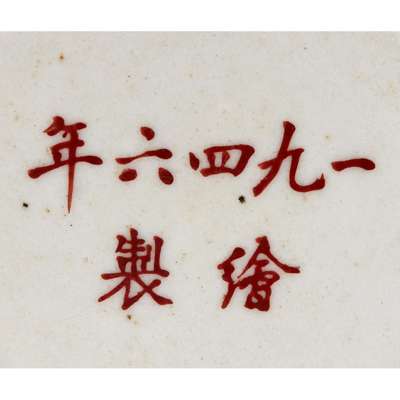 一九四六年
繪製